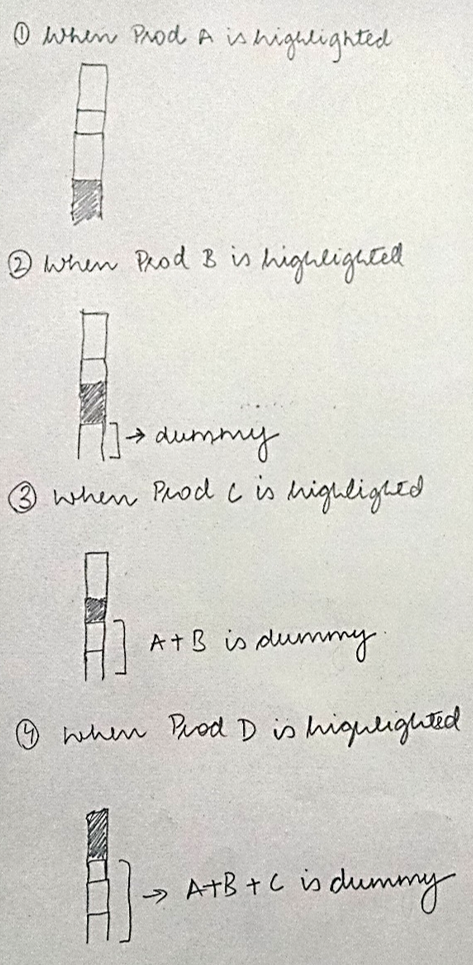 ① When Prod A is highlighted
② When Prod B is highlighted
→ dummy
③ When Prod C is highlighted
A+B is dummy.
④ When Prod D is highlighted
→ A+B+C is dummy